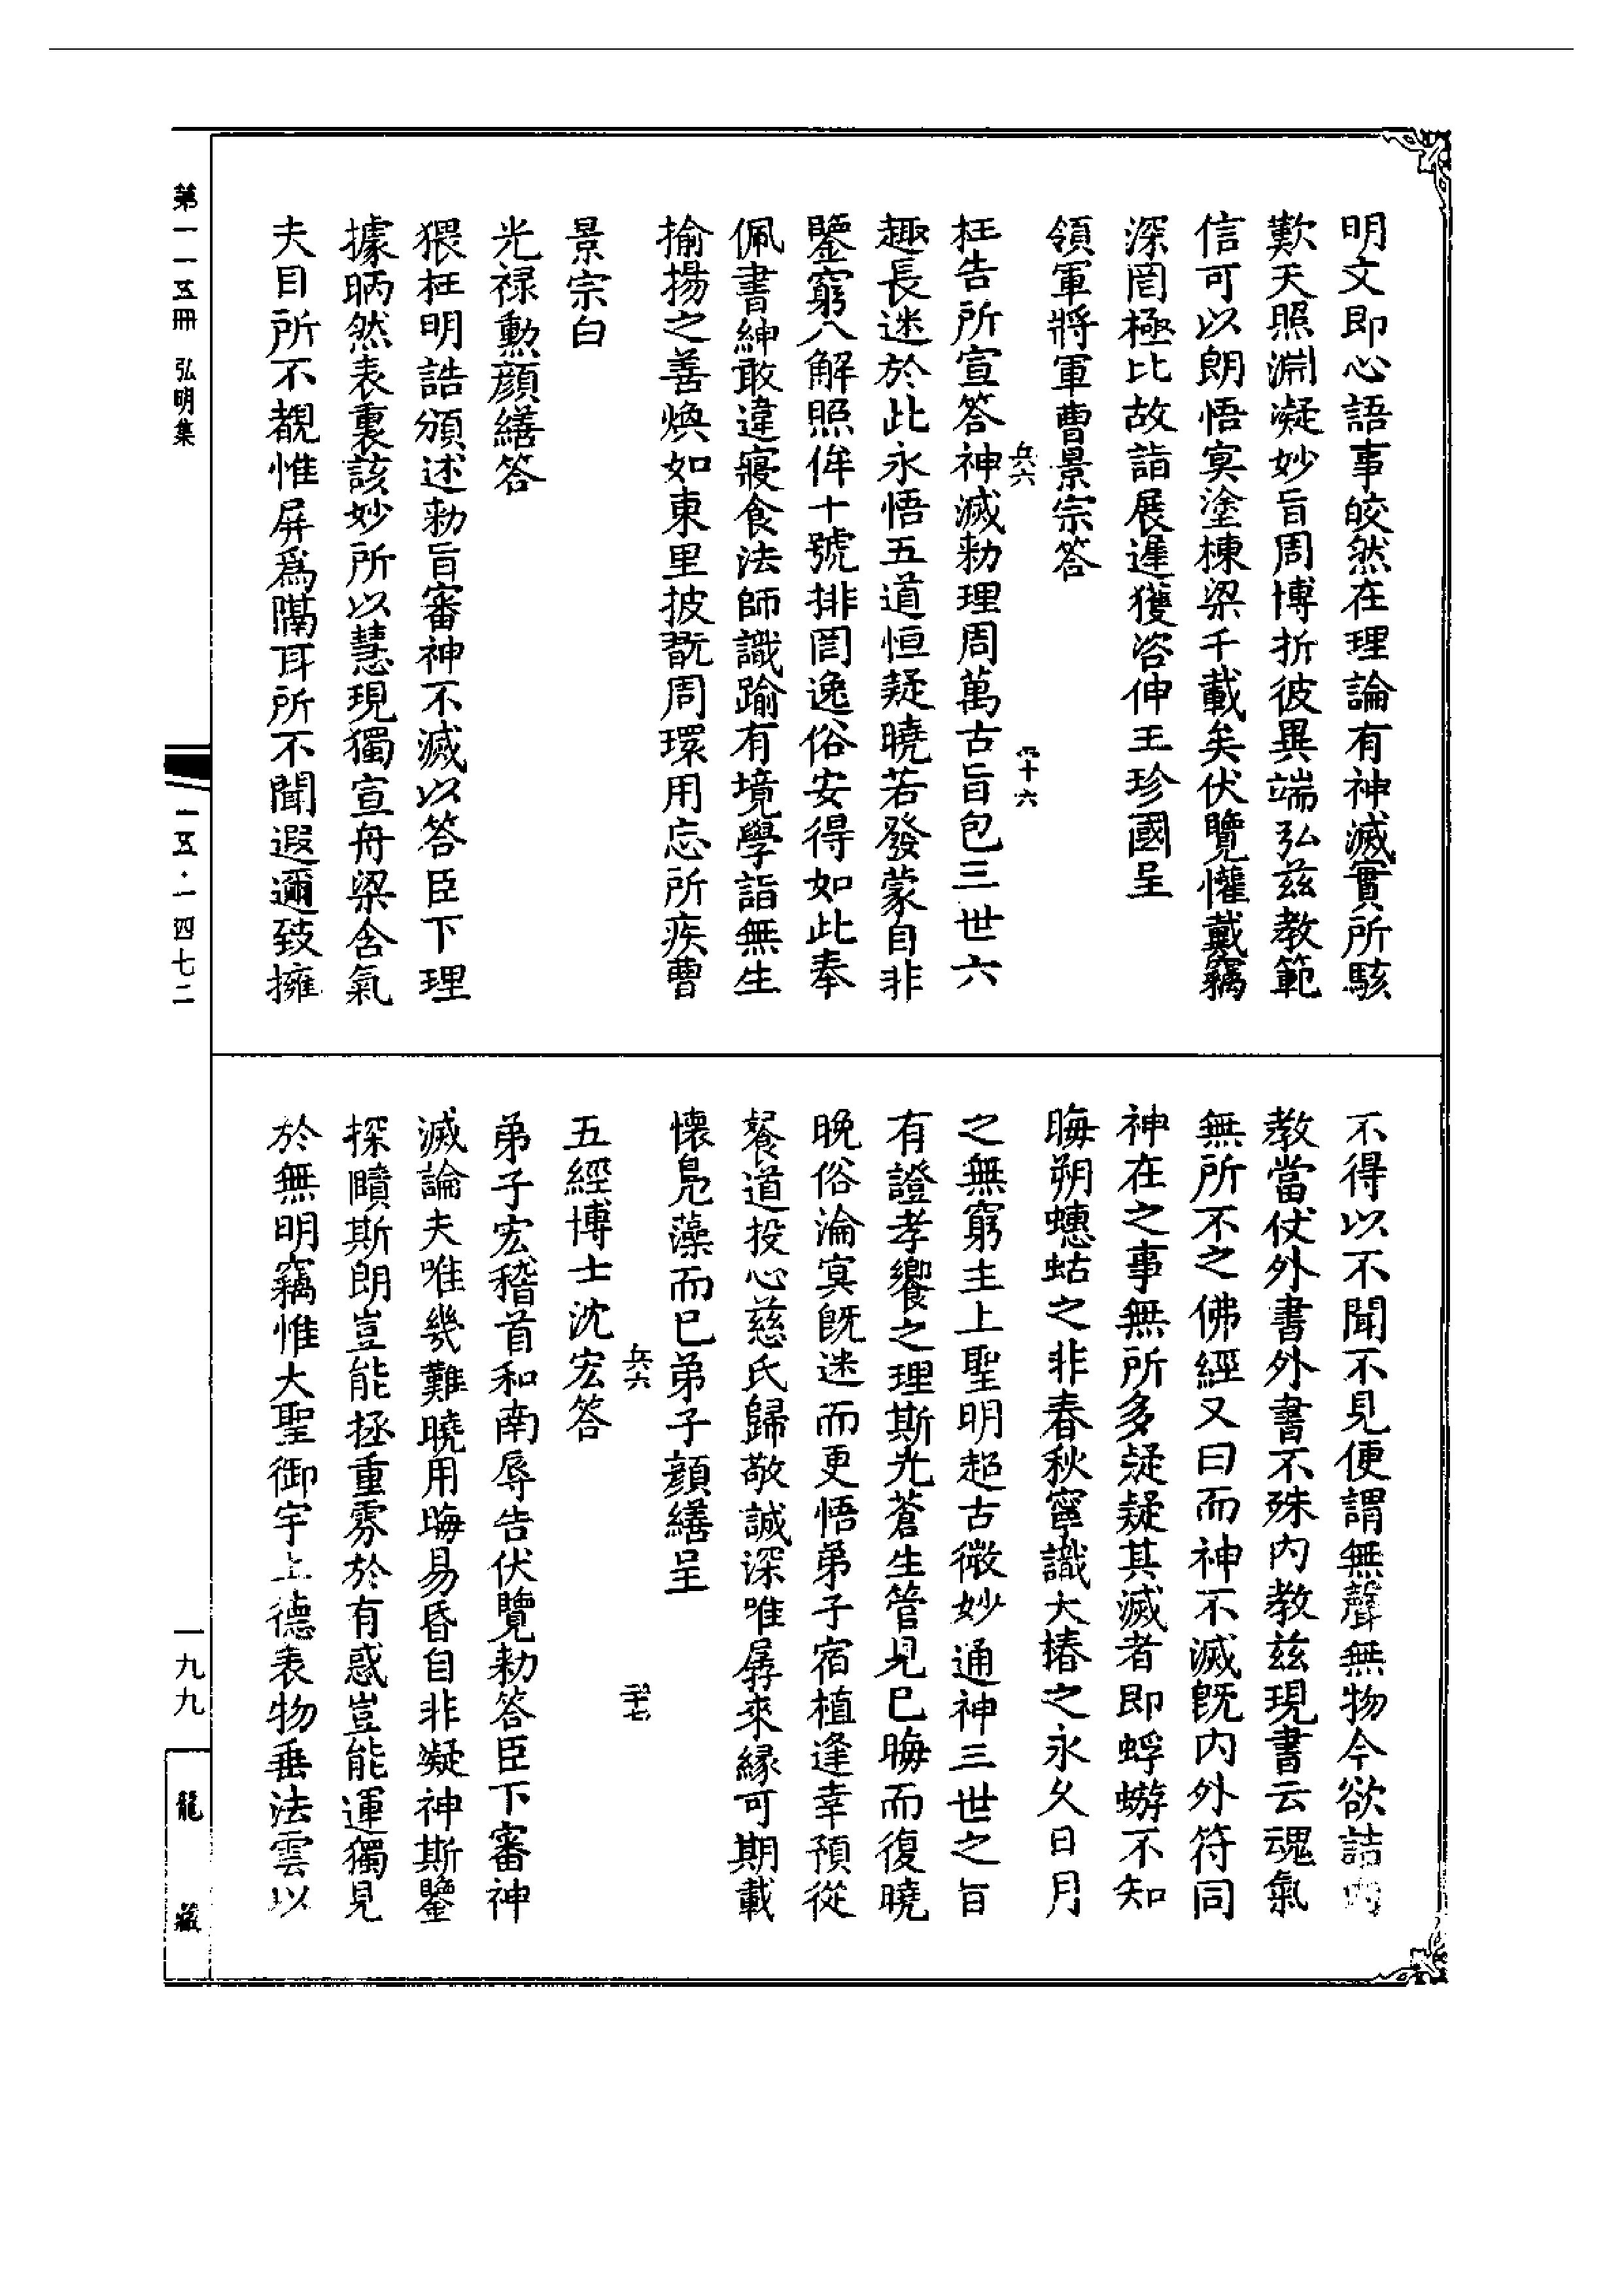 明文即心語事皎然在理論有神滅實所駭
歎天照淵凝妙旨周博折彼異端弘茲教範
信可以朗悟寞塗棟梁千載矣伏覽懽戴竊
深罔極比故詣展遲獲咨伸王珍國呈
領軍將軍曹景宗答
兵六
十六
枉告所宣答神滅勑理周萬古旨包三世六
趣長迷於此永悟五道恒疑曉若發蒙自非
鑒窮八解照侔十號排罔逸俗安得如此奉
佩書紳敢違寢食法師識踰有境學詣無生
揄揚之善煥如東里披翫周環用忘所疾曹
景宗白
光禄勳顔繕答
猥枉明誥頒述勑旨審神不滅以答臣下理
據昞然表裏該妙所以慧現獨宣舟梁含氣
夫目所不覩惟屏爲隔耳所不聞遐邇致擁
不得以不聞不見便謂無聲無物今欲詰
教當仗外書外書不殊內教茲現書云魂氣
無所不之佛經又曰而神不滅旣內外符同
神在之事無所多疑疑其滅者即蜉蝣不知
晦朔蟪蛄之非春秋寧識大椿之永久日月
之無窮主上聖明超古微妙通神三世之旨
有證孝饗之理斯光蒼生管見已晦而復曉
晚俗淪寞旣迷而更悟弟子宿植逢幸預從
餐道投心慈氏歸敬誠深唯孱來縁可期載
懷鳧藻而已弟子顔繕呈
兵六
五經博士沈宏答
弟子宏稽首和南辱告伏覽勑答臣下審神
滅論夫唯幾難曉用晦易昏自非凝神斯鑒
探賾斯朗豈能拯重雰於有惑豈能運獨見
於無明竊惟大聖御宇上德表物垂法雲以
第一一五冊 弘明集
一五·一四七二
一九九
龍藏